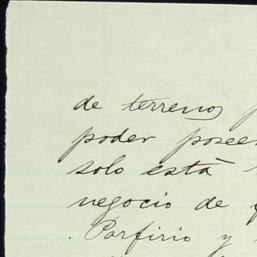 de terrenos
poder poseer
solo está
negocio de
. Porfirio y